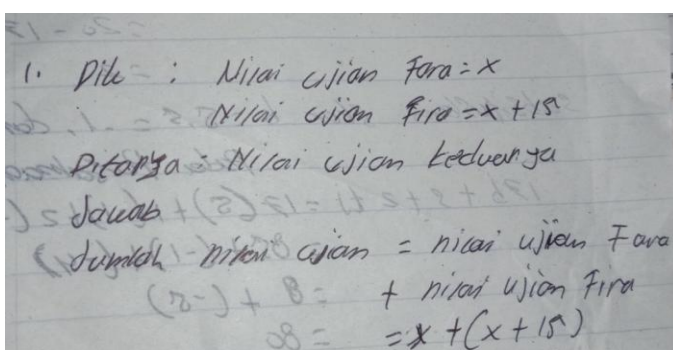 1. Dik : Nilai ujian Fara = x
Nilai ujian Fira = x + 15
Ditanya : Nilai ujian keduanya
Jawab
Jumlah nilai ujian = nilai ujian Fara
+ nilai ujian Fira
= x + (x + 15)